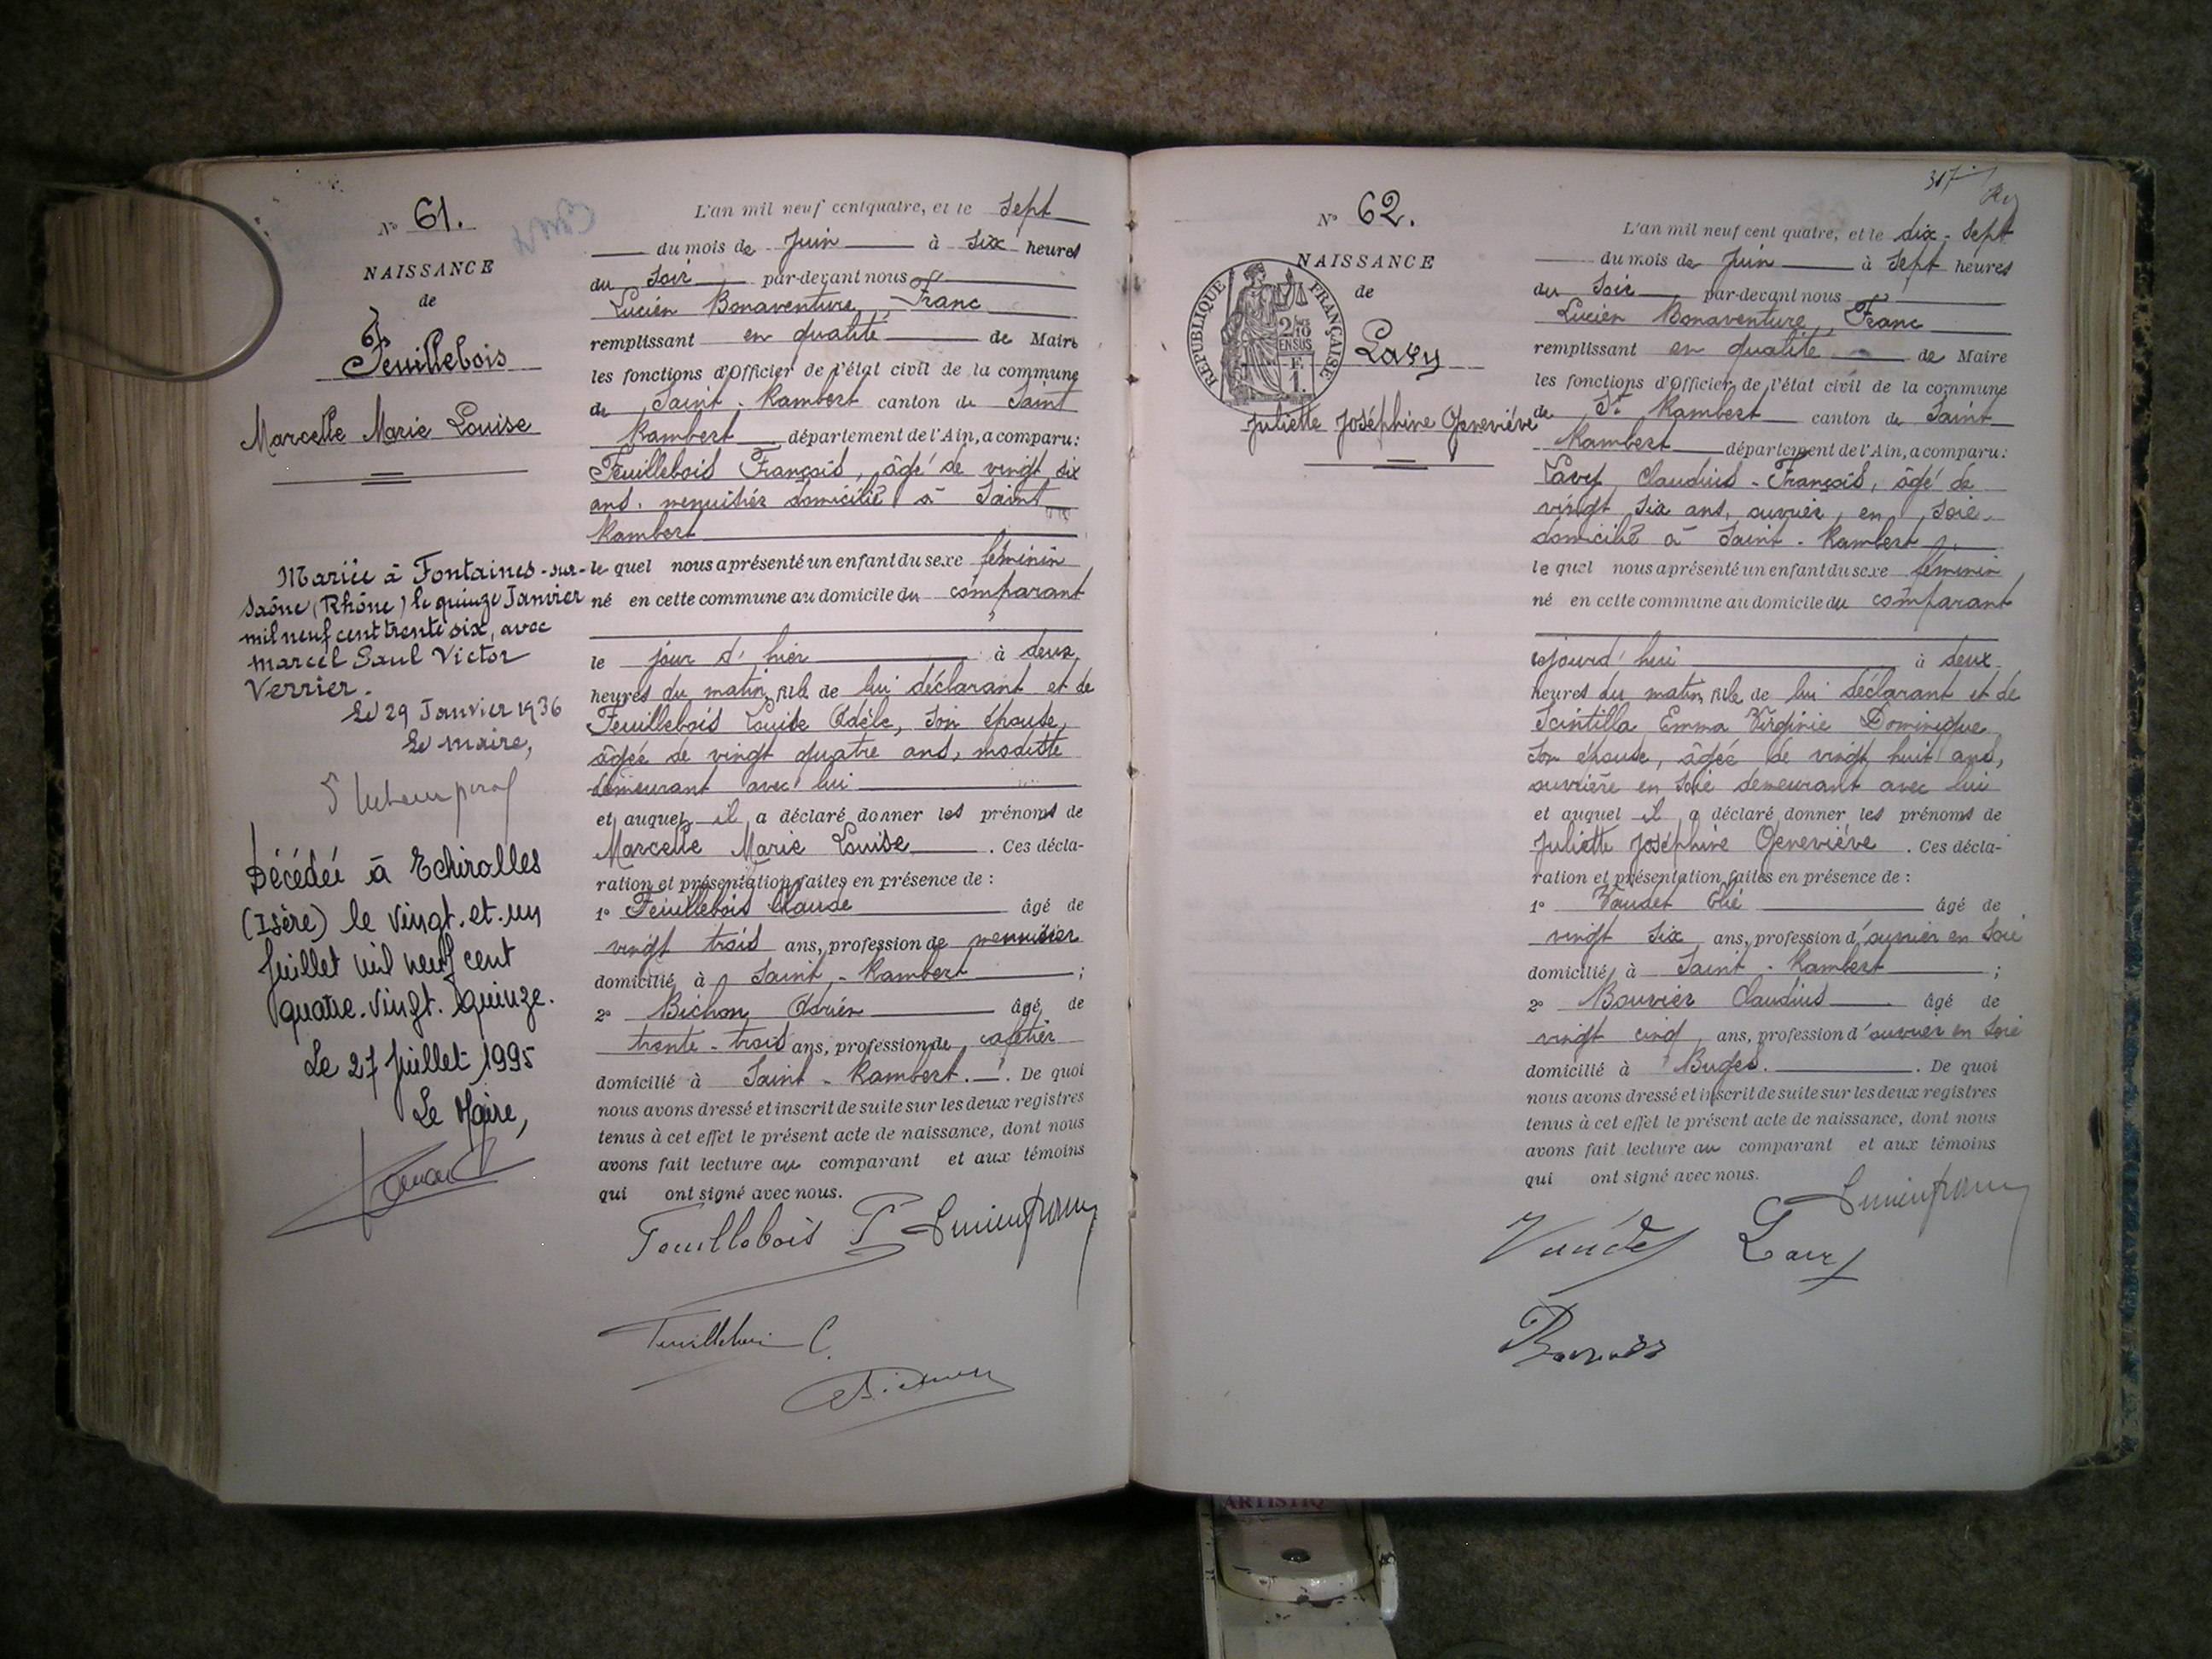 N° 61.
NAISSANCE
de
Feuillebois
Marcelle Marie Louise
Mariée à Fontaines-sur-
Saône (Rhône) le quinze Janvier
mil neuf cent trente six, avec
Marcel Paul Victor
Verrier.
Le 29 Janvier 1936
Le Maire,
Décédée à Echirolles
(Isère) le vingt-et-un
Juillet mil neuf cent
quatre-vingt-quinze.
Le 27 Juillet 1995
Le Maire,
L'an mil neuf cent quatre, et le sept
du mois de Juin à six heures
du soir par-devant nous
Lucien Bonaventure Franc
remplissant en qualité de Maire
les fonctions d'Officier de l'état civil de la commune
de Saint-Rambert canton de Saint
Rambert, département de l'Ain, a comparu:
Feuillebois François, âgé de vingt six
ans, menuisier domicilié à Saint
Rambert
le quel nous a présenté un enfant du sexe féminin
né en cette commune au domicile du comparant
le jour d'hier à deux
heures du matin, fille de lui déclarant et de
Feuillebois Louise Adèle, son épouse,
âgée de vingt quatre ans, modiste
demeurant avec lui
et auquel il a déclaré donner les prénoms de
Marcelle Marie Louise. Ces décla-
ration et présentation faites en présence de :
1° Feuillebois Claude âgé de
vingt trois ans, profession de menuisier
domicilié à Saint-Rambert ;
2° Bichon Adrien âgé de
trente-trois ans, profession de cafetier
domicilié à Saint-Rambert. De quoi
nous avons dressé et inscrit de suite sur les deux registres
tenus à cet effet le présent acte de naissance, dont nous
avons fait lecture au comparant et aux témoins
qui ont signé avec nous.
Feuillebois F Lucien Franc
Feuillebois C.
317
N° 62.
NAISSANCE
de
RÉPUBLIQUE FRANÇAISE
2/10 EN SUS
1 F.
Lavy
Juliette Joséphine Geneviève
L'an mil neuf cent quatre, et le dix-sept
du mois de Juin à sept heures
du soir par-devant nous
Lucien Bonaventure, Franc
remplissant en qualité de Maire
les fonctions d'Officier de l'état civil de la commune
de St Rambert canton de Saint
Rambert département de l'Ain, a comparu:
Lavy Claudius-François, âgé de
vingt six ans, ouvrier en soie
domicilié à Saint-Rambert
le quel nous a présenté un enfant du sexe féminin
né en cette commune au domicile du comparant
cejourd'hui à deux
heures du matin, fille de lui déclarant et de
Scintilla Emma Virginie Dominique
son épouse, âgée de vingt huit ans,
ouvrière en soie demeurant avec lui
et auquel il a déclaré donner les prénoms de
Juliette Joséphine Geneviève. Ces décla-
ration et présentation faites en présence de :
1° Vaudet Elie âgé de
vingt six ans, profession d'ouvrier en soie
domicilié à Saint-Rambert ;
2° Bouvier Claudius âgé de
vingt cinq ans, profession d'ouvrier en soie
domicilié à Buges. De quoi
nous avons dressé et inscrit de suite sur les deux registres
tenus à cet effet le présent acte de naissance, dont nous
avons fait lecture au comparant et aux témoins
qui ont signé avec nous.
Lucien Franc
Vaudet Lavy
Bouvier
ARTISTIQ